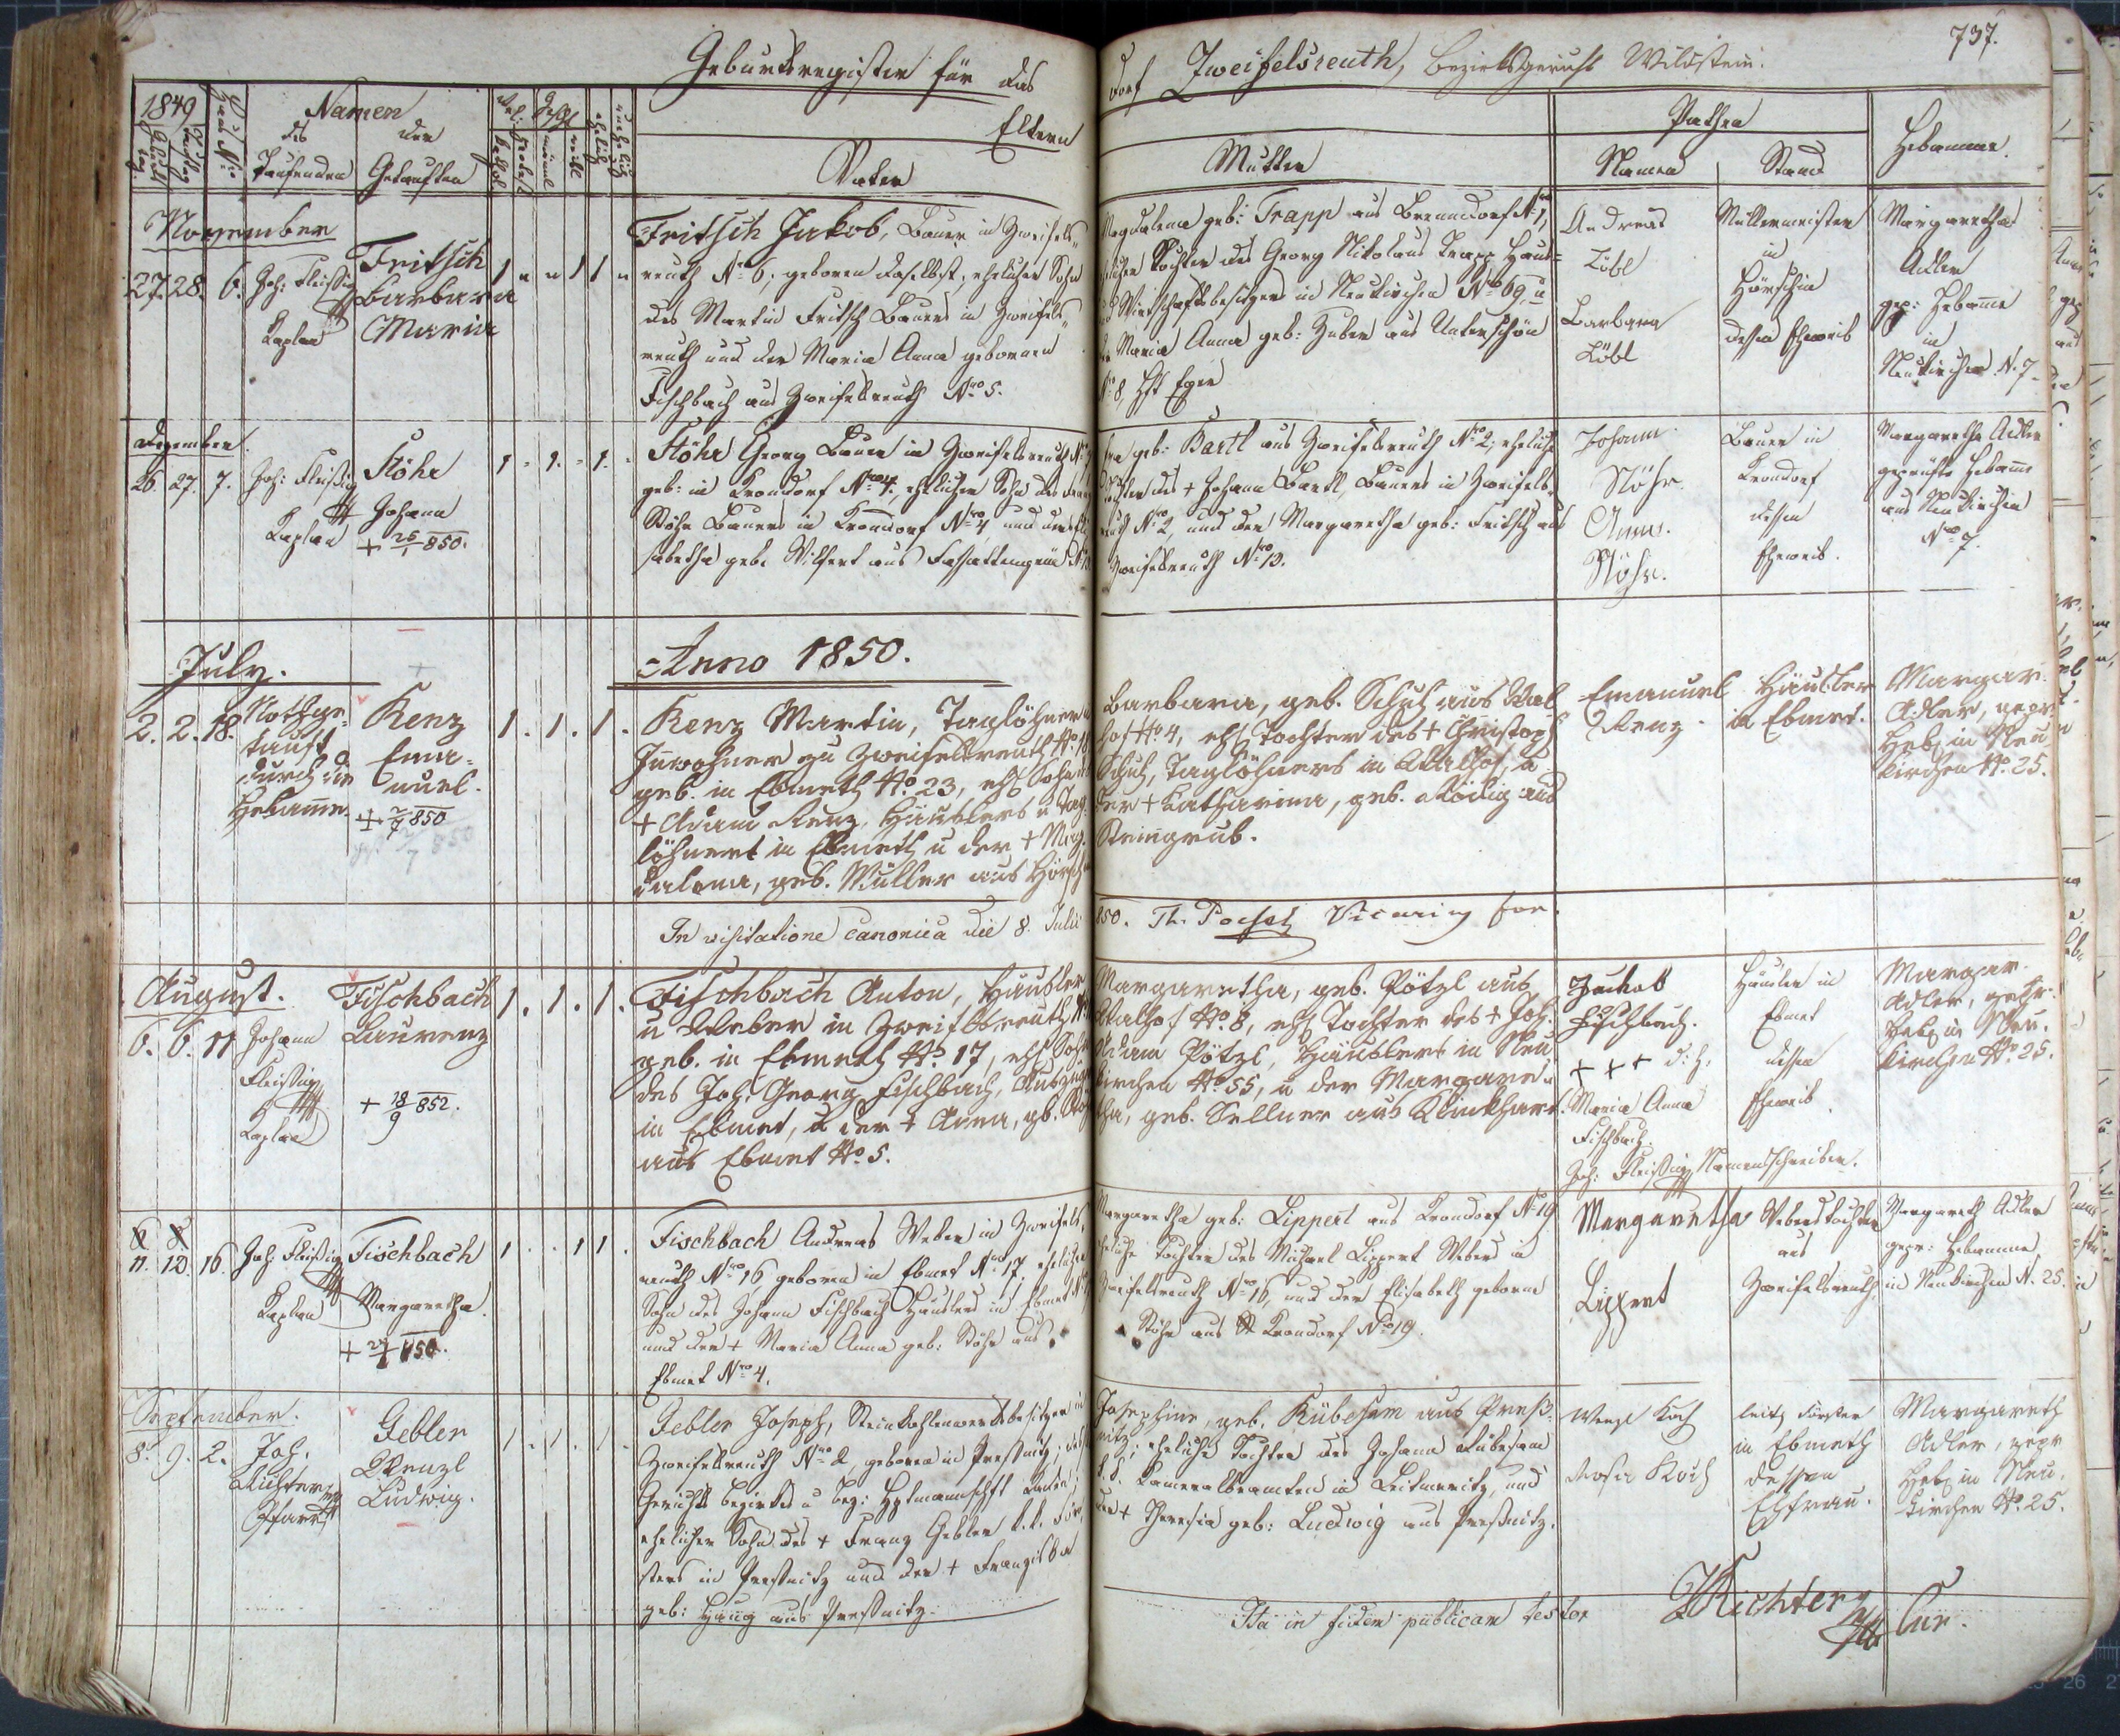 737.
Geburtsregister für das Dorf Zweifelsreuth, Bezirksgericht Wildstein.
1849
Geburts tag
Tauftag
Haus Nro
Namen
des Taufenden
der Getauften
Rel:
kathol
protest
Geschl
männl
weibl
ehelich
unehelich
Eltern
Vater
Mutter
Pathen
Namen
Stand
Hebamme.
November
27. 28. 6.
Joh: Fleißig
Kaplan
Fritsch
Barbara
Maria
1 " " 1 1 "
Fritsch Jakob, Bauer in Zweifels-
reuth No 6, geboren daselbst, ehelicher Sohn
des Martin Fritsch Bauers in Zweifels-
reuth und der Maria Anna gebornen
Fischbach aus Zweifelsreuth Nro 5.
Magdalena geb: Trapp aus Nro 1,
eheliche Tochter des Georg Nikolaus Trapp Haus-
und Wirtschaftsbesitzers in Neukirchen No 69 u
der Maria Anna geb: Huber aus Unterschön
No 8, Hft Eger
Andreas
Löbl
Barbara
Löbl
Müllermeister
in
Hörschin
dessen Eheweib
Margaretha
Adler
gep: Hebame
in
Neukirchen N. 7.
Dezember.
26. 27. 7.
Joh: Fleißig
Kaplan
Stöhr
Johann
+ 25/1 850.
1 - 1. - 1.
Stöhr Georg Bauer in Zweifelsreuth No
geb: in Krondorf Nro 4, ehelicher Sohn des
Stöhr Bauers in Krondorf Nro 4 und der Eli-
sabetha geb. Wilfert aus
geb: Bartl aus Zweifelsreuth Nro 2, eheliche
Tochter des + Johann Bartl, Bauers in Zweifels-
reuth Nro 2, und der Margaretha geb: Fritsch aus
Zweifelsreuth Nro 13.
Johann
Stöhr.
Anna
Stöhr.
Bauer in
Krondorf
dessen
Eheweib.
Margaretha Adler
geprüfte Hebame
aus Neukirchen
Nro 7.
Anno 1850.
July.
2. 2. 18.
Nothge-
tauft
durch die
Hebame.
Renz
Ema-
nuel.
+ 2/7 850
1. 1. 1.
Renz Martin, Taglöhner u
Inwohner zu Zweifelsreuth No. 18
geb. in Ebmeth No. 23, ehl Sohn des
+ Adam Renz, Häuslers u Tag-
löhners in Ebmeth u der + Mag-
dalena, geb. Müller aus Hörsch
Barbara, geb. Schuh aus Wal-
hof No 4, ehl Tochter des + Christoph
Schuh, Taglöhners in Walhof, u
der + Katharina, geb. Rödig aus
Steingrub.
Emanuel
Renz.
Häusler
in Ebmet.
Margar.
Adler, gepr
Heb in Neu-
kirchen No. 25.
In visitatione canonica die 8. Julii 850. Vicarius for.
August.
6. 6. 11
Johann
Fleißig
Kaplan
Fischbach
Laurenz
+ 18/9 852.
1. 1. 1.
Fischbach Anton, Häusler
u Weber in Zweifelsreuth No
geb. in Ebmeth No. 17, ehl Sohn
des Joh. Georg Fischbach, Auszügl
in Ebmet, u der + Anna, gb.
aus Ebmet No. 5.
Margaretha, geb. Pötzl aus
Walhof No. 8, ehl Tochter des + Joh.
Adam Pötzl, Häuslers in Neu-
kirchen No 55, u der Margare-
tha, geb. Sellner aus Klinkhart.
Jachob
Fischbach.
+ + + d. h.
Maria Anna
Fischbach.
Joh: Fleißig Namensschreiber.
Häusler in
Ebmet
dessen
Eheweib
Margar.
Adler, gepr.
Heb in Neu-
kirchen No 25.
11. 12. 16.
Joh: Fleißig
Kaplan
Fischbach
Margaretha.
1 . . 1 1 .
Fischbach Andreas Weber in Zweifels-
reuth Nro 16 geboren in Ebmet Nro 17, ehelicher
Sohn des Johann Fischbach Häuslers in Ebmet
und der + Maria Anna geb: Stöhr aus
Ebmet Nro 4.
Margaretha geb: Lippert aus Krondorf No 19
eheliche Tochter des Michael Lippert Webers in
Zweifelsreuth Nro 16, und der Elisabeth geborne
Stöhr aus Krondorf Nro 19.
Margaretha
Lippert
Weberstochter
aus
Zweifelsreuth
Margareth Adler
gepr: Hebamme
in Neukirchen N. 25.
September.
8. 9. 2.
Joh.
Richter
Pfarrer
Gebler
Wenzl
Ludwig.
1. 1. 1.
Gebler Joseph, Steinkohlenwerksbesitzer in
Zweifelsreuth Nro 2, geboren in Preßnitz,
Gerichts bezirkes u Bez: Hptmannschft Kaaden;
ehelicher Sohn des + Franz Gebler k. k. För-
sters in Preßnitz und der + Franziska
geb: Haug aus Preßnitz.
Josephine, geb. Kübesam aus Preß-
nitz; eheliche Tochter des Johann Kübesam
k. k. Kameralbeamten in Leitmeritz, und
der + Theresia geb: Ludwig aus Preßnitz.
Wenzl Koch
Rosa Koch
Förster
in Ebmeth
dessen
Ehfrau.
Margareth
Adler, gepr
Heb in Neu-
kirchen No. 25.
Ita in fidem publicam testor
J Richter
Cur.